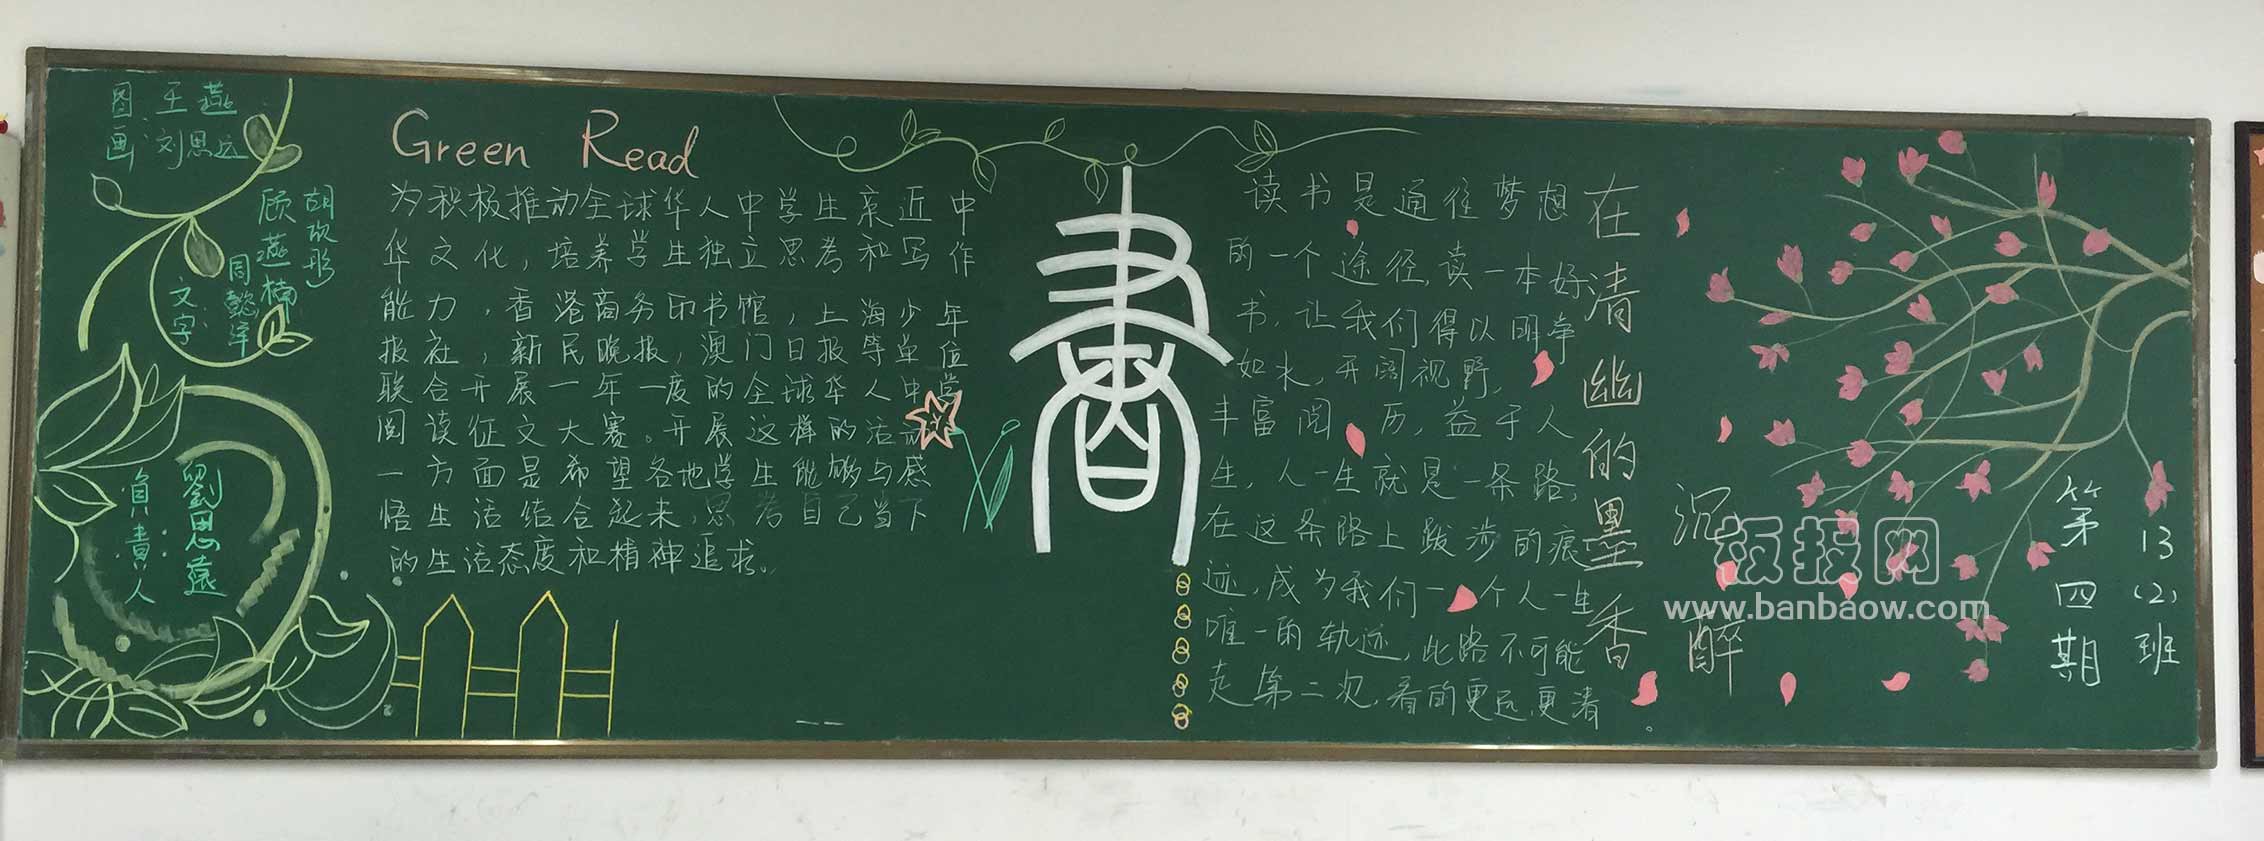 图画:王燕
刘思远
胡欣彤
顾燕楠
周懿洋
文字:
劉思薳
負責人:
Green Read
为积极推动全球华人中学生亲近中
华文化，培养学生独立思考和写作
能力，香港商务印书馆，上海少年
报社，新民晚报，澳门日报等单位
联合开展一年一度的全球华人中学
阅读征文大赛。开展这样的活动
一方面是希望各地学生能够与感
悟生活结合起来，思考自己当下
的生活态度和精神追求。
書
读书是通往梦想
的一个途径，读一本好
书，让我们得以明净
如水，开阔视野，
丰富阅历，益于人
生，人一生就是一条路，
在这条路上跋涉的痕
迹，成为我们一个人一生
唯一的轨迹，此路不可能
走第二次，看的更远，更清。
在清幽的墨香
沉醉
第四期
13(2)班
板报网
www.banbaow.com